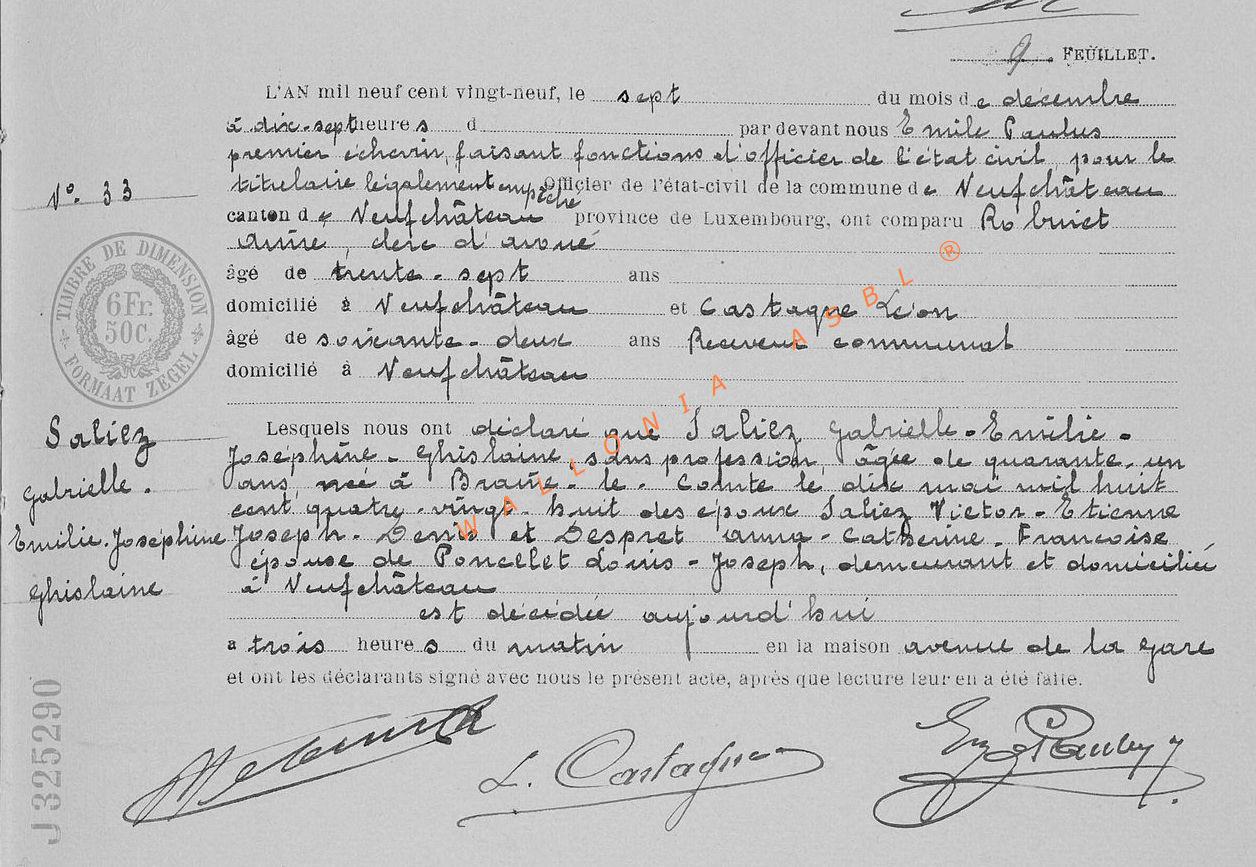 9 FEUILLET.
L'AN mil neuf cent vingt-neuf, le sept du mois de décembre
à dix-sept heures d par devant nous Emile Paulus
premier échevin, faisant fonctions d'officier de l'état civil, pour le
titulaire légalement empêché Officier de l'état-civil de la commune de Neufchâteau
N° 33
canton de Neufchâteau province de Luxembourg, ont comparu
clerc d'avoué
TIMBRE DE DIMENSION
6Fr. 50C.
FORMAAT ZEGEL
âgé de trente-sept ans
domicilié à Neufchâteau et Castagne Léon
âgé de soixante-deux ans Receveur communal
domicilié à Neufchâteau
Saliez
Gabrielle.
Emilie-Joséphine
Ghislaine
Lesquels nous ont déclaré que Saliez Gabrielle-Emilie-
Joséphine-Ghislaine, sans profession, âgée de quarante-un
ans, née à Braine-le-Comte le dix mai mil huit
cent quatre-vingt-huit des époux Saliez Victor-Etienne
Joseph-Denis et Despret Anna-Catherine-Françoise
épouse de Poncelet Louis-Joseph, demeurant et domicilié
à Neufchâteau
est décédée aujourd'hui
a trois heures du matin en la maison avenue de la gare
et ont les déclarants signé avec nous le présent acte, après que lecture leur en a été faite.
L. Castagne
J 325290
WALLONIA ASBL ®